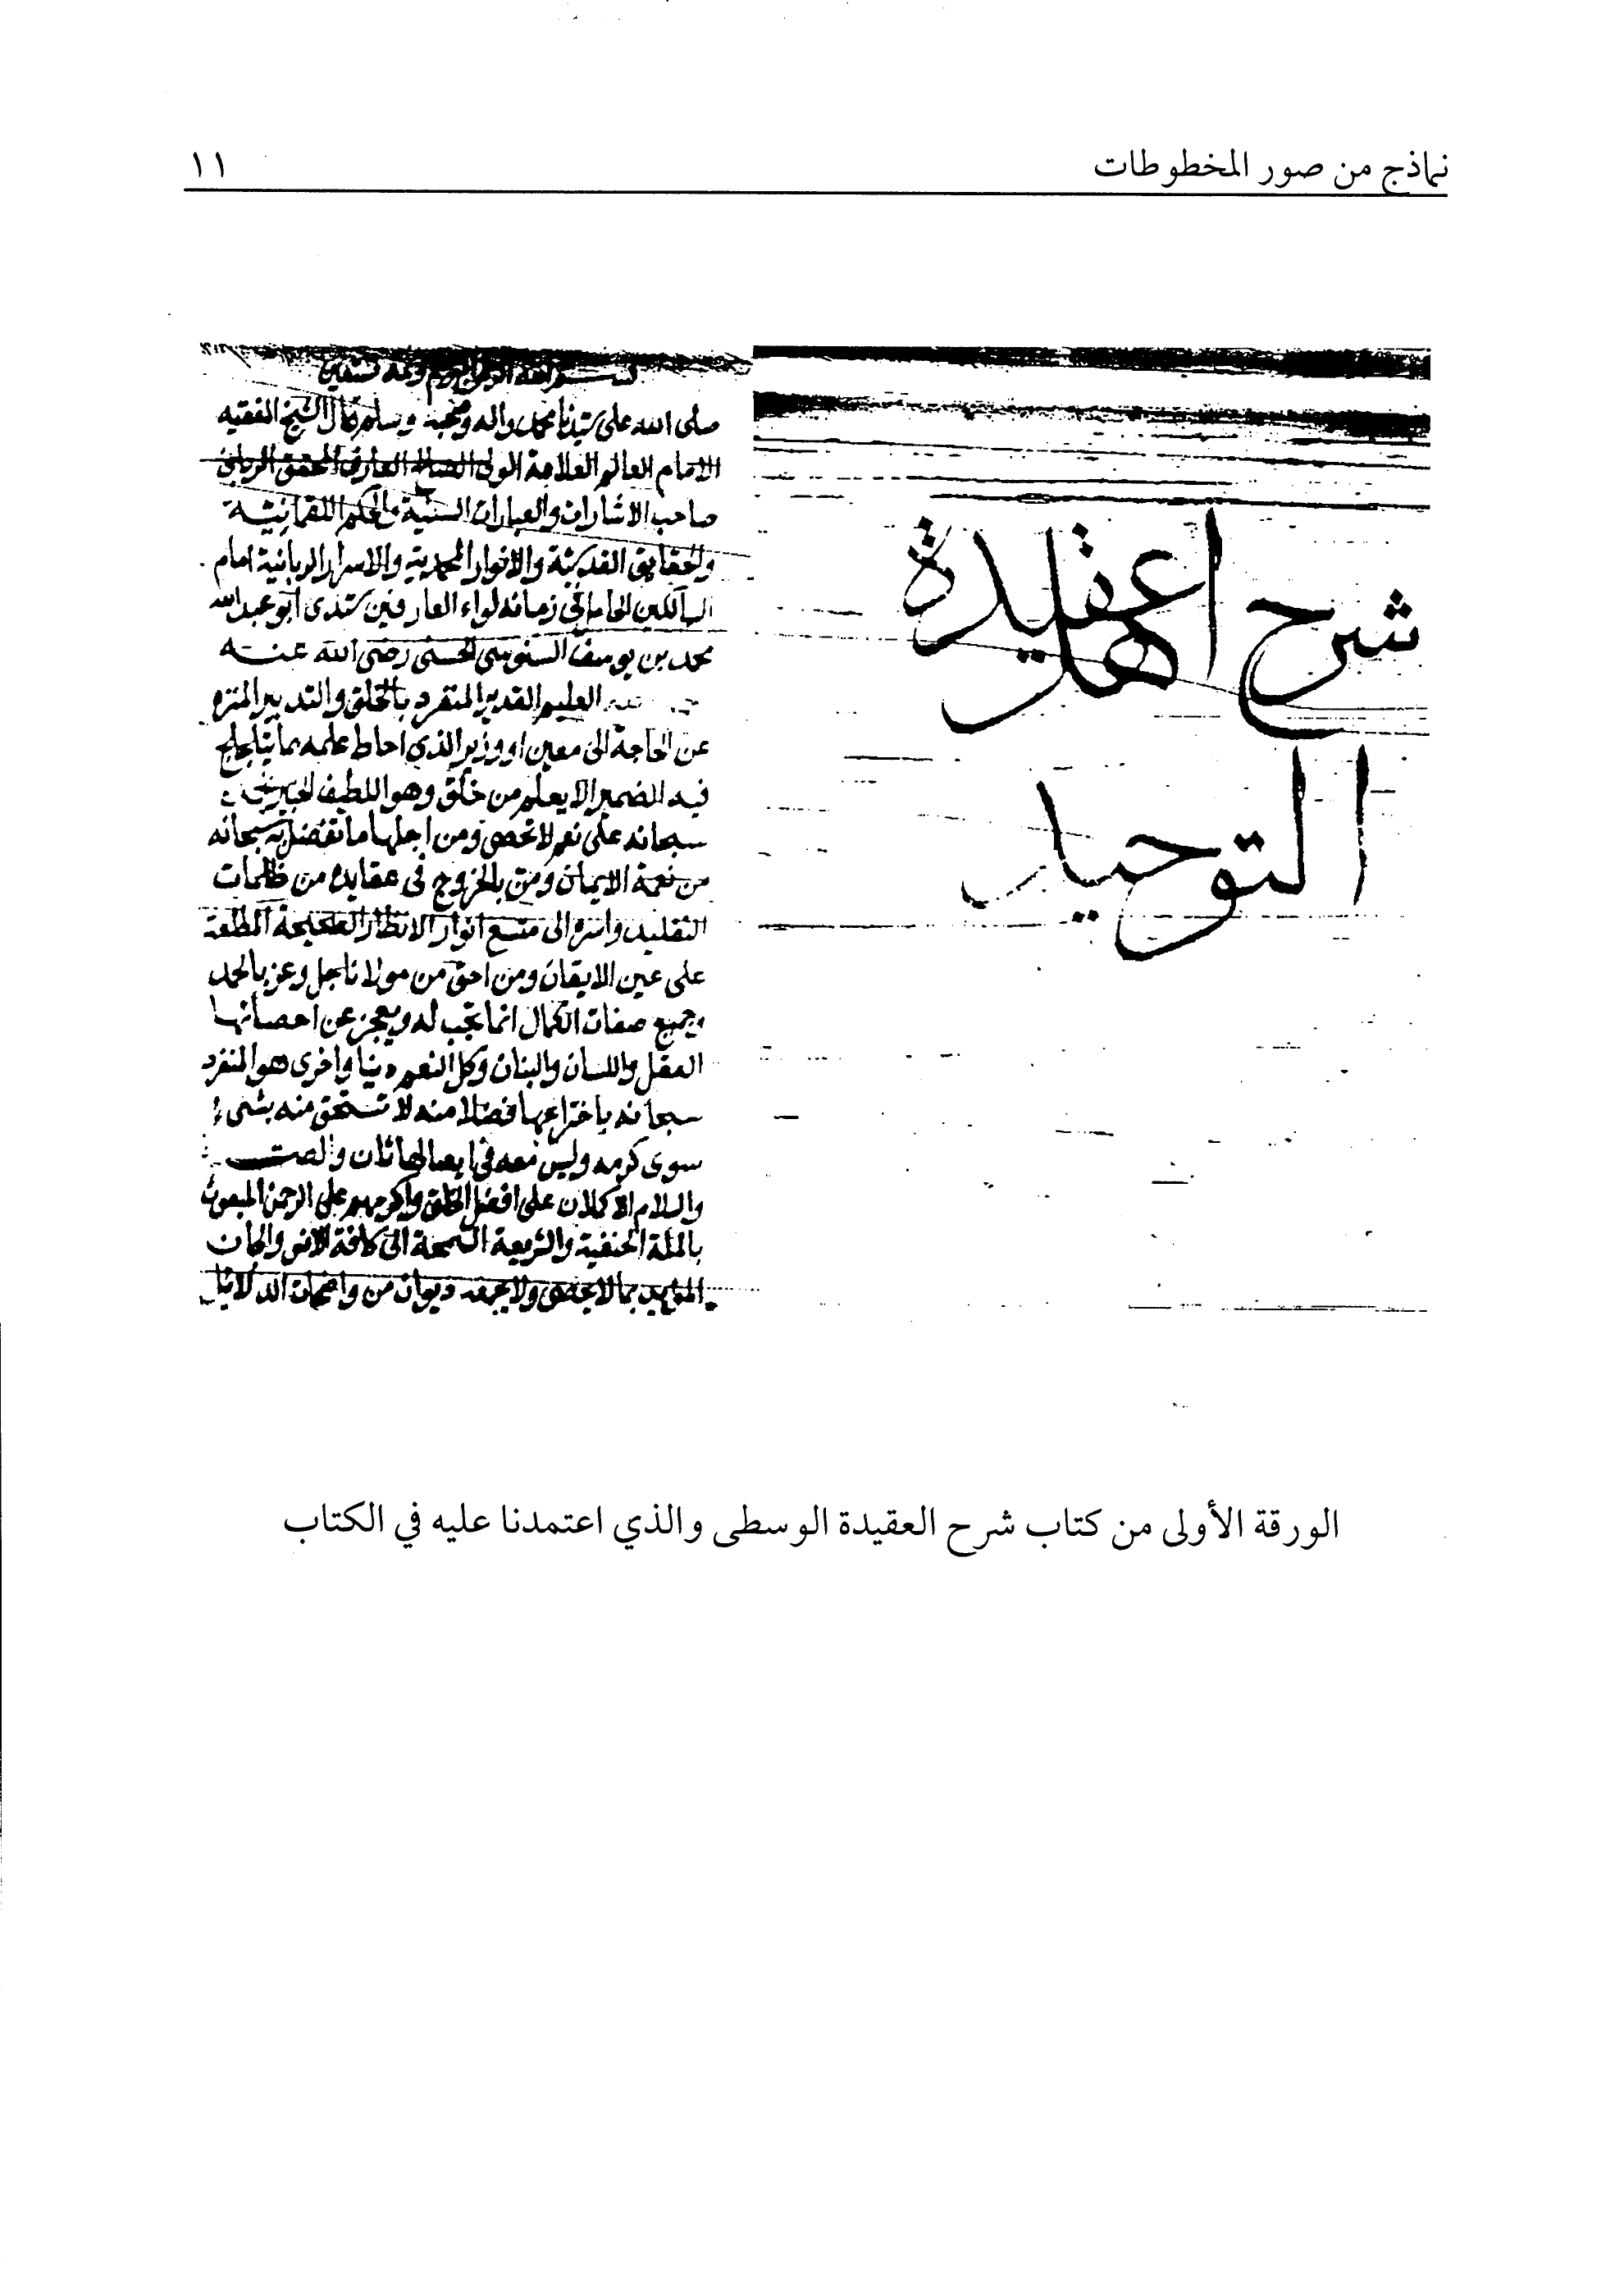 نماذج من صور المخطوطات ١١
شرح عقيدة اهل
التوحيد
بسم الله الرحمن الرحيم وبه نستعين
صلى الله على سيدنا محمد واله وصحبه وسلم قال الشيخ الفقيه
الامام العالم العلامة الولى الصالح العارف المحقق الربانى
صاحب الاشارات والعبارات السنية والحكم اللقمانية
والحقايق القدسية والانوار المحمدية والاسرار الربانية امام
السالكين الحامل فى زمانه لواء العارفين سيدى ابو عبد الله
محمد بن يوسف السنوسى الحسنى رضى الله عنه
لله العليم القدير المتفرد بالخلق والتدبير المنزه
عن الحاجة الى معين او وزير الذي احاط علمه بما يتلجلج
فيه الضمير الا يعلم من خلق وهو اللطيف الخبير
سبحانه على نعم لا تحصى ومن اجلها ما تفضل به سبحانه
من نعمة الايمان ومن بالخروج فى عقايده من ظلمات
التقليد واسره الى متسع انوار الانظار الصحيحة المطلعة
على عين الايقان ومن احق من مولانا جل وعز بالحمد
وجميع صفات الكمال انما تجب له ويعجز عن احصائها
العقل واللسان والبنان وكل النعم دنيا واخرى هو المنفرد
سبحانه باختراعها فضلا منه لا تستحق منه بشىء
سوى كرمه وليس معه فى ايصالها ثان والصلاة
والسلام الاكملان على افضل الخلق واكرمهم على الرحمن المبعوث
بالملة الحنفية والشريعة السمحة الى كافة الانس والجان
المؤيد بما لا يحصى ولا يجمعه ديوان من واضحات الدلائل
الورقة الأولى من كتاب شرح العقيدة الوسطى والذي اعتمدنا عليه في الكتاب